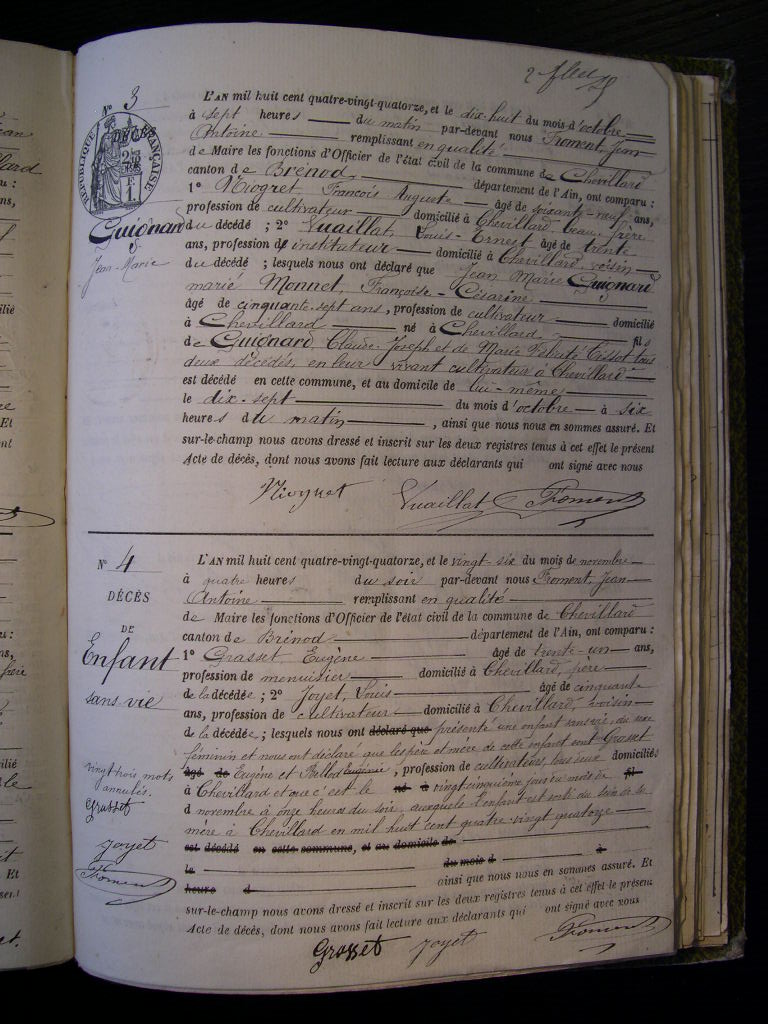 2 feu
N° 3
DÉCÈS
RÉPUBLIQUE FRANÇAISE
Guignard
Jean-Marie
L'AN mil huit cent quatre-vingt-quatorze, et le dix-huit du mois d'octobre
à sept heures du matin par-devant nous Froment, Jean
Antoine remplissant en qualité
de Maire les fonctions d'Officier de l'état civil de la commune de Chevillard
canton de Brénod, département de l'Ain, ont comparu :
1° Niogret François Auguste âgé de soixante-neuf ans,
profession de cultivateur domicilié à Chevillard, beau-frère
du décédé ; 2° Vuaillat, Louis-Ernest âgé de trente
ans, profession d'instituteur domicilié à Chevillard, voisin
du décédé ; lesquels nous ont déclaré que Jean Marie Guignard
marié Monnet, Françoise-Césarine
âgé de cinquante-sept ans, profession de cultivateur domicilié
à Chevillard né à Chevillard fils
de Guignard, Claude-Joseph et de Marie Félicité Cissot tous
deux décédés, en leur vivant cultivateur à Chevillard
est décédé en cette commune, et au domicile de lui-même
le dix-sept du mois d'octobre à six
heures du matin, ainsi que nous nous en sommes assuré. Et
sur-le-champ nous avons dressé et inscrit sur les deux registres tenus à cet effet le présent
Acte de décès, dont nous avons fait lecture aux déclarants qui ont signé avec nous
Niogret Vuaillat Froment
N° 4
DÉCÈS
DE
Enfant
sans vie
L'AN mil huit cent quatre-vingt-quatorze, et le vingt-six du mois de novembre
à quatre heures du soir par-devant nous Froment, Jean
Antoine remplissant en qualité
de Maire les fonctions d'Officier de l'état civil de la commune de Chevillard
canton de Brénod département de l'Ain, ont comparu :
1° Grasset, Eugène âgé de trente-un ans,
profession de menuisier domicilié à Chevillard, père
de la décédée ; 2° Joyet, Louis âgé de cinquante
ans, profession de cultivateur domicilié à Chevillard, voisin
de la décédée ; lesquels nous ont déclaré que présenté une enfant sans vie, du sexe
féminin et nous ont déclaré que les père et mère de cette enfant sont Grasset
âgé de Eugène et Billod Eugénie, profession de cultivateurs, tous deux domiciliés
à Chevillard et que c'est le né à vingt-cinquième jour du mois de fil
d novembre à onze heures du soir, auxquels l'enfant est sorti du sein de sa
mère à Chevillard en mil huit cent quatre-vingt quatorze
est décédé en cette commune, et au domicile de
le du mois d à
heure d ainsi que nous nous en sommes assuré. Et
sur-le-champ nous avons dressé et inscrit sur les deux registres tenus à cet effet le présent
Acte de décès, dont nous avons fait lecture aux déclarants qui ont signé avec nous
Grasset Joyet Froment
vingt-trois mots
annulés.
Grasset
Joyet
Froment